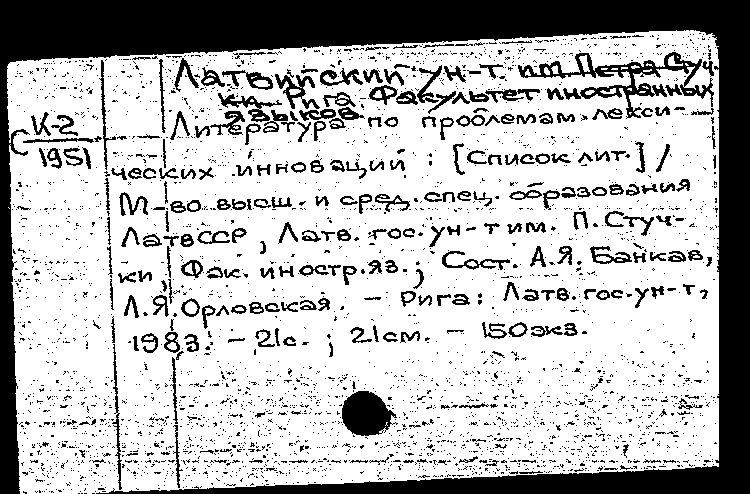 Латвийский ун-т. им. Петра Сту́ч-
ки. Рига. Факультет иностранных
языков
К-2
С 1951
Литература по проблемам лекси-
ческих инноваций : [Список лит.] /
М-во высш. и сред. спец. образования
ЛатвССР, Латв. гос. ун-т им. П. Стуч-
ки, Фак. иностр. яз. ; Сост. А.Я. Банкав,
Л.Я. Орловская. - Рига: Латв. гос. ун-т,
1983. - 21с. ; 21см. - 150экз.